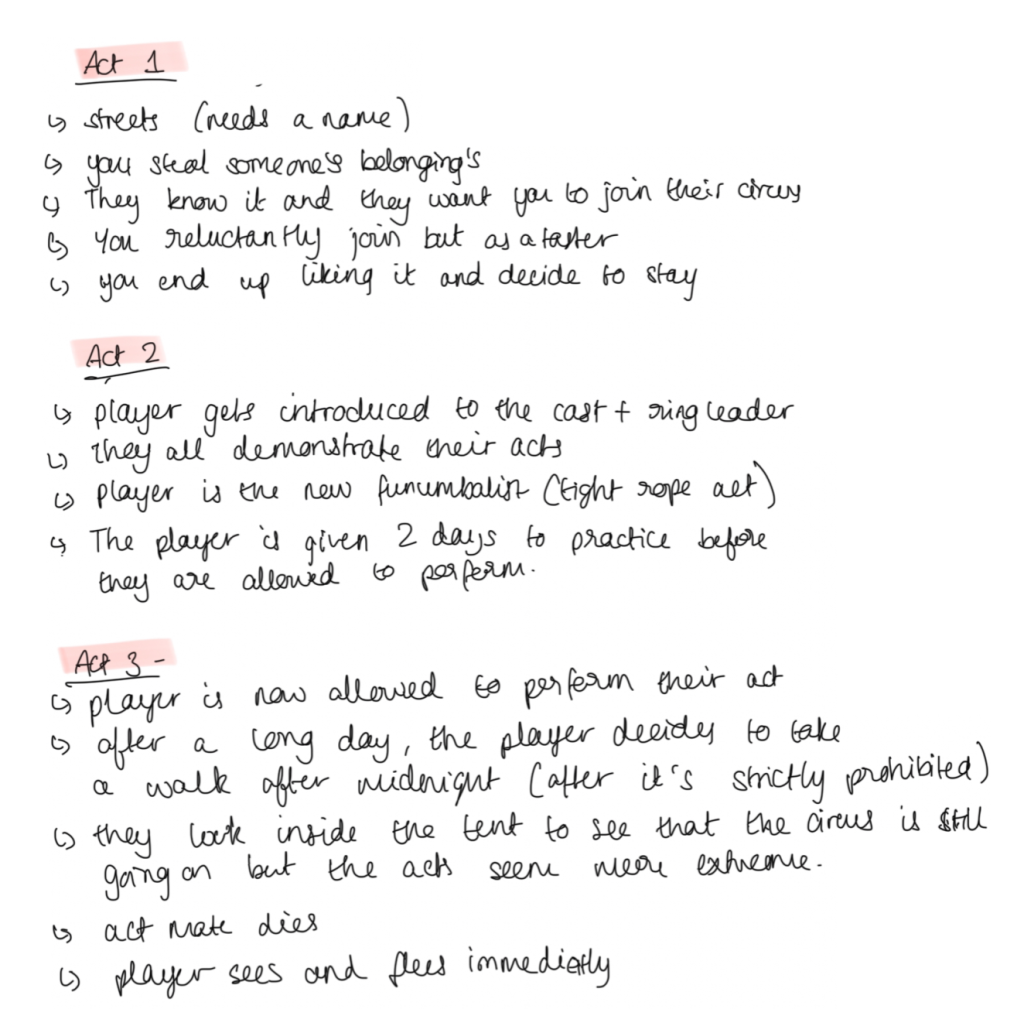 Act 1
↳ streets (needs a name)
↳ you steal someone's belonging's
↳ They know it and they want you to join their circus
↳ You reluctantly join but as a taster
↳ you end up liking it and decide to stay
Act 2
↳ player gets introduced to the cast + ring leader
↳ They all demonstrate their acts
↳ player is the new funumbalist (tight rope act)
↳ The player is given 2 days to practice before
they are allowed to perform.
Act 3 -
↳ player is now allowed to perform their act
↳ after a long day, the player decides to take
a walk after midnight (after it's strictly prohibited)
↳ they look inside the tent to see that the circus is still
going on but the acts seem more extreme.
↳ act mate dies
↳ player sees and flees immediatly